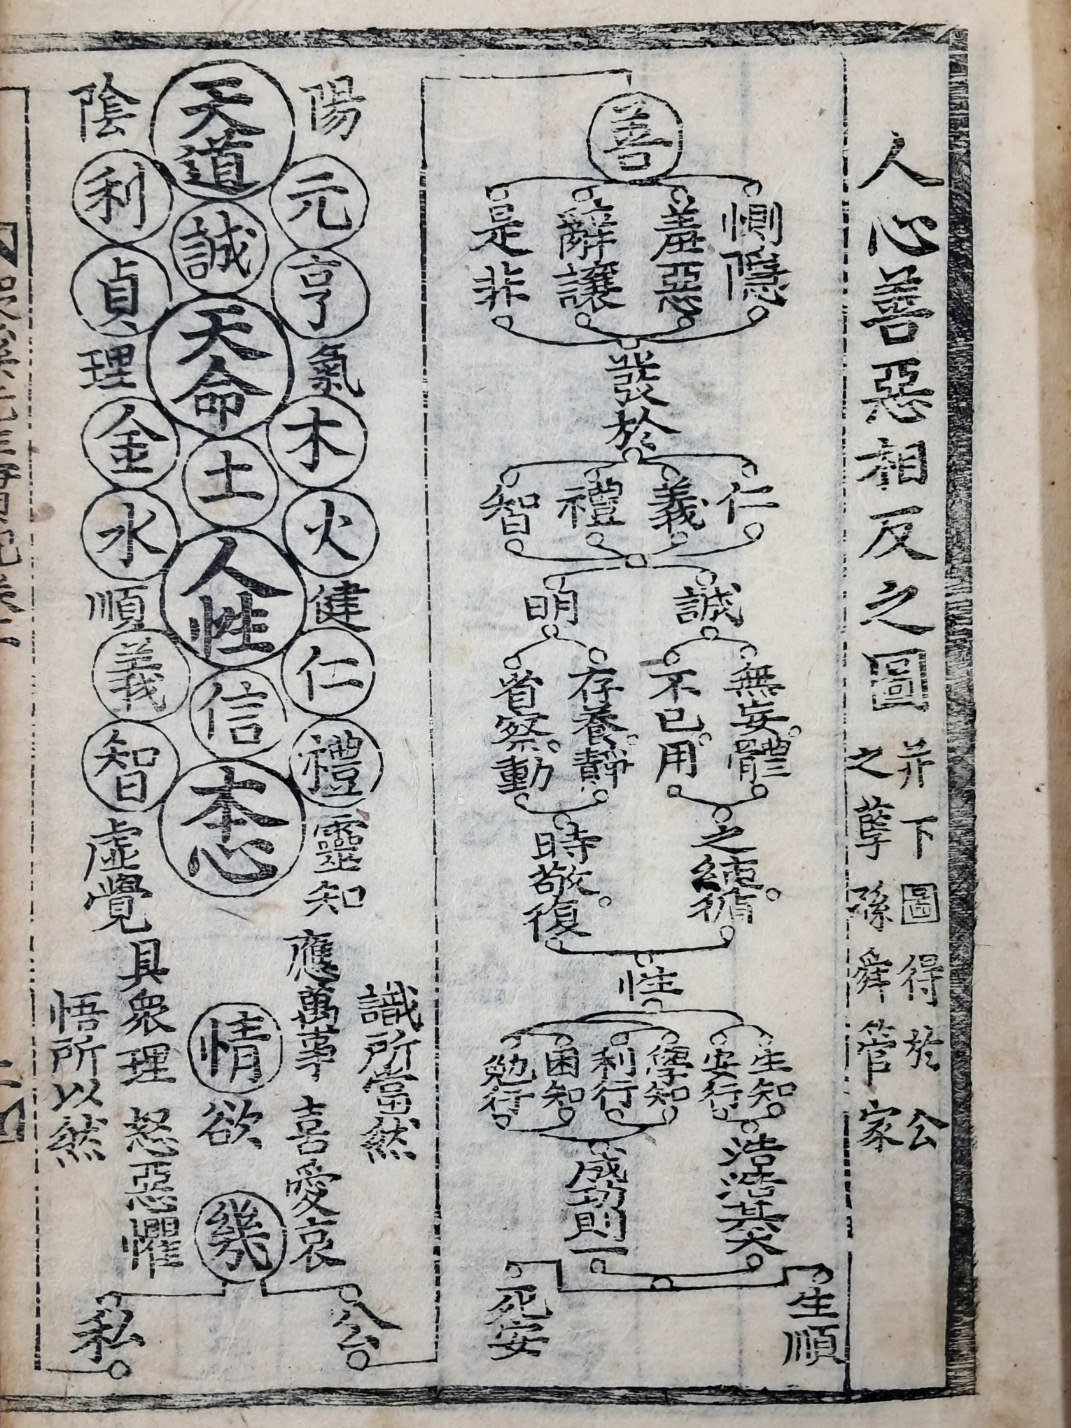 人心善惡相反之圖
并下圖得於公
之孽孫舜管家
善
惻隱
羞惡
辭讓
是非
發於
仁
義
禮
智
誠
明
無妄體
不已用
存養靜
省察動
之純循
時敬復
性
生知
安行
學知
利行
困知
勉行
浩浩其天
成功則一
生順
死安
陽
天道
陰
元
誠
利
亨
天命
貞
氣
理
木
土
金
火
人性
水
健
順
仁
信
義
禮
本心
智
靈知
虛覺
應萬事
具眾理
識所當然
悟所以然
情
欲
喜愛哀
怒惡懼
幾
公
私